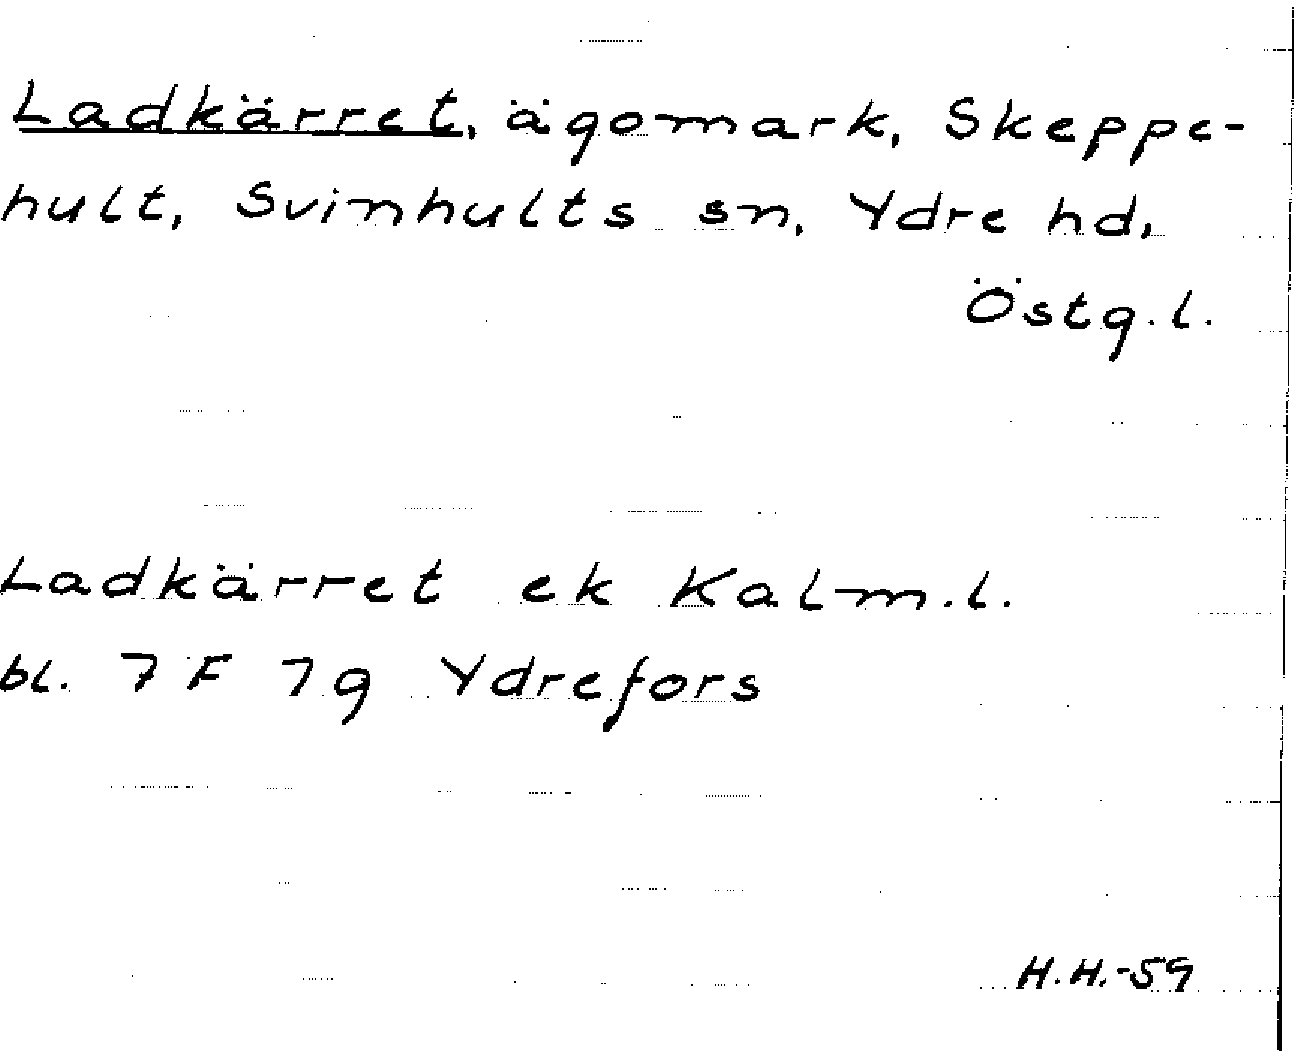 Ladkärret, ägomark, Skeppe-
hult, Svinhults sn, Ydre hd,
Östg.l.
Ladkärret ek Kalm.l.
bl. 7 F 7g Ydrefors
H.H.-59